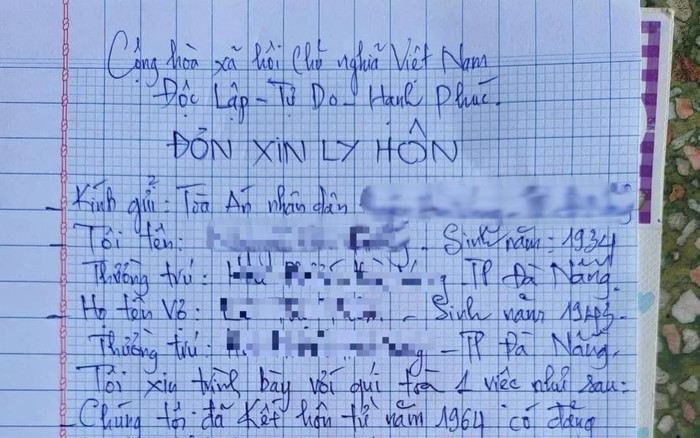 Cộng hòa xã hội Chủ nghĩa Việt Nam
Độc Lập - Tự Do - Hạnh Phúc.
ĐƠN XIN LY HÔN
Kính gửi: Tòa Án nhân dân
Tôi tên: - Sinh năm: 1934
Thường trú: - TP Đà Nẵng.
Họ tên Vợ: - Sinh năm 1943.
Thường trú: - TP Đà Nẵng.
Tôi xin trình bày với quí tòa 1 việc như sau:
Chúng tôi đã Kết hôn từ năm 1964 có đăng